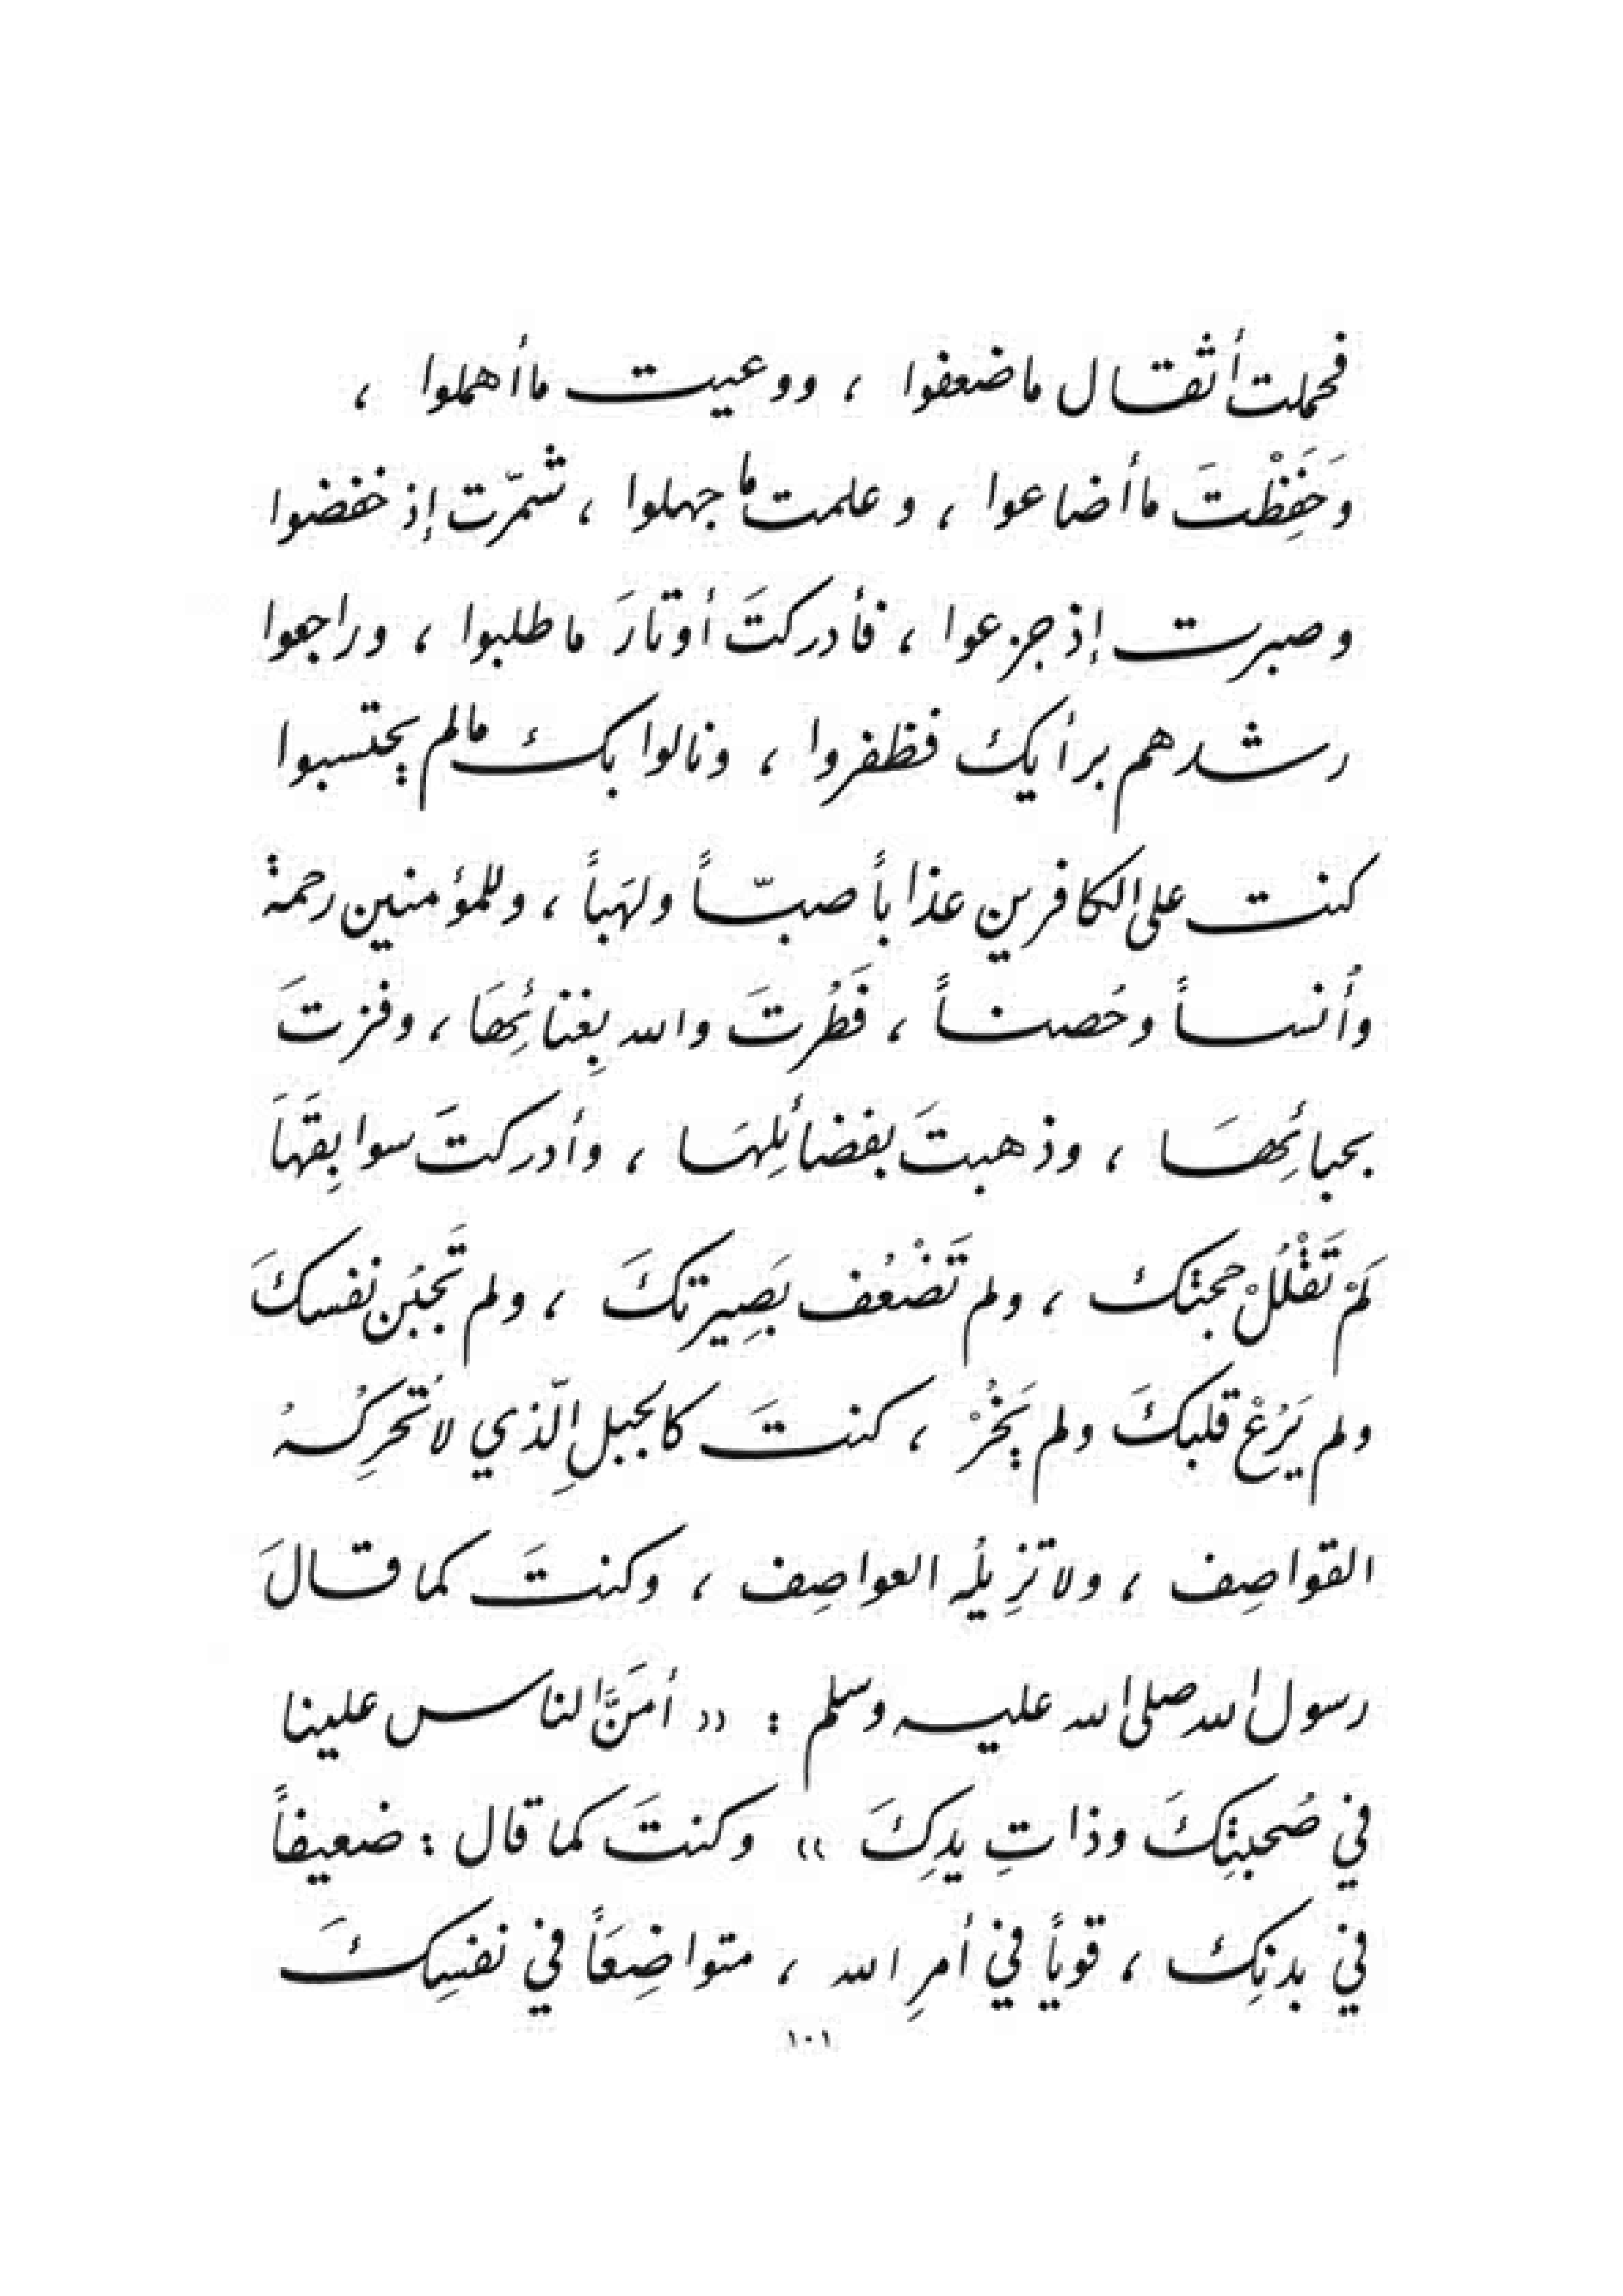 فحملت أثقال ما ضعفوا ، ووعيت ما أهملوا ،
وَحَفِظْتَ ما أضاعوا ، وعلمت ما جهلوا ، شمّرت إذ خفضوا
وصبرت إذ جزعوا ، فأدركتَ أوتارَ ما طلبوا ، وراجعوا
رشدهم برأيك فظفروا ، ونالوا بك مالم يحتسبوا
كنت على الكافرين عذاباً صبّاً ولهَباً ، وللمؤمنين رحمة
وأُنساً وحُصناً ، فَطُرتَ والله بِغنائِحهَا ، وفزتَ
بحبائِحهَا ، وذهبتَ بفضائِلهَا ، وأدركتَ سوابِقَهَا
لَمْ تَقْلُلْ حجتك ، ولم تَضْعُف بَصِيرتكَ ، ولم تَجبُن نفسكَ
ولم يَرُعْ قلبكَ ولم يَخُرْ ، كنتَ كالجبلِ الّذي لاتُحَرِكُهُ
القواصِف ، ولا تزِيلُه العواصِف ، وكنتَ كما قالَ
رسول الله صلى الله عليه وسلم : (( أمَنَّ الناس علينا
في صُحبتِكَ وذاتِ يدِكَ )) وكنتَ كما قال : ضعيفاً
في بدنِك ، قوياً في أمرِ الله ، متواضِعَاً في نفسِكَ
١٠١